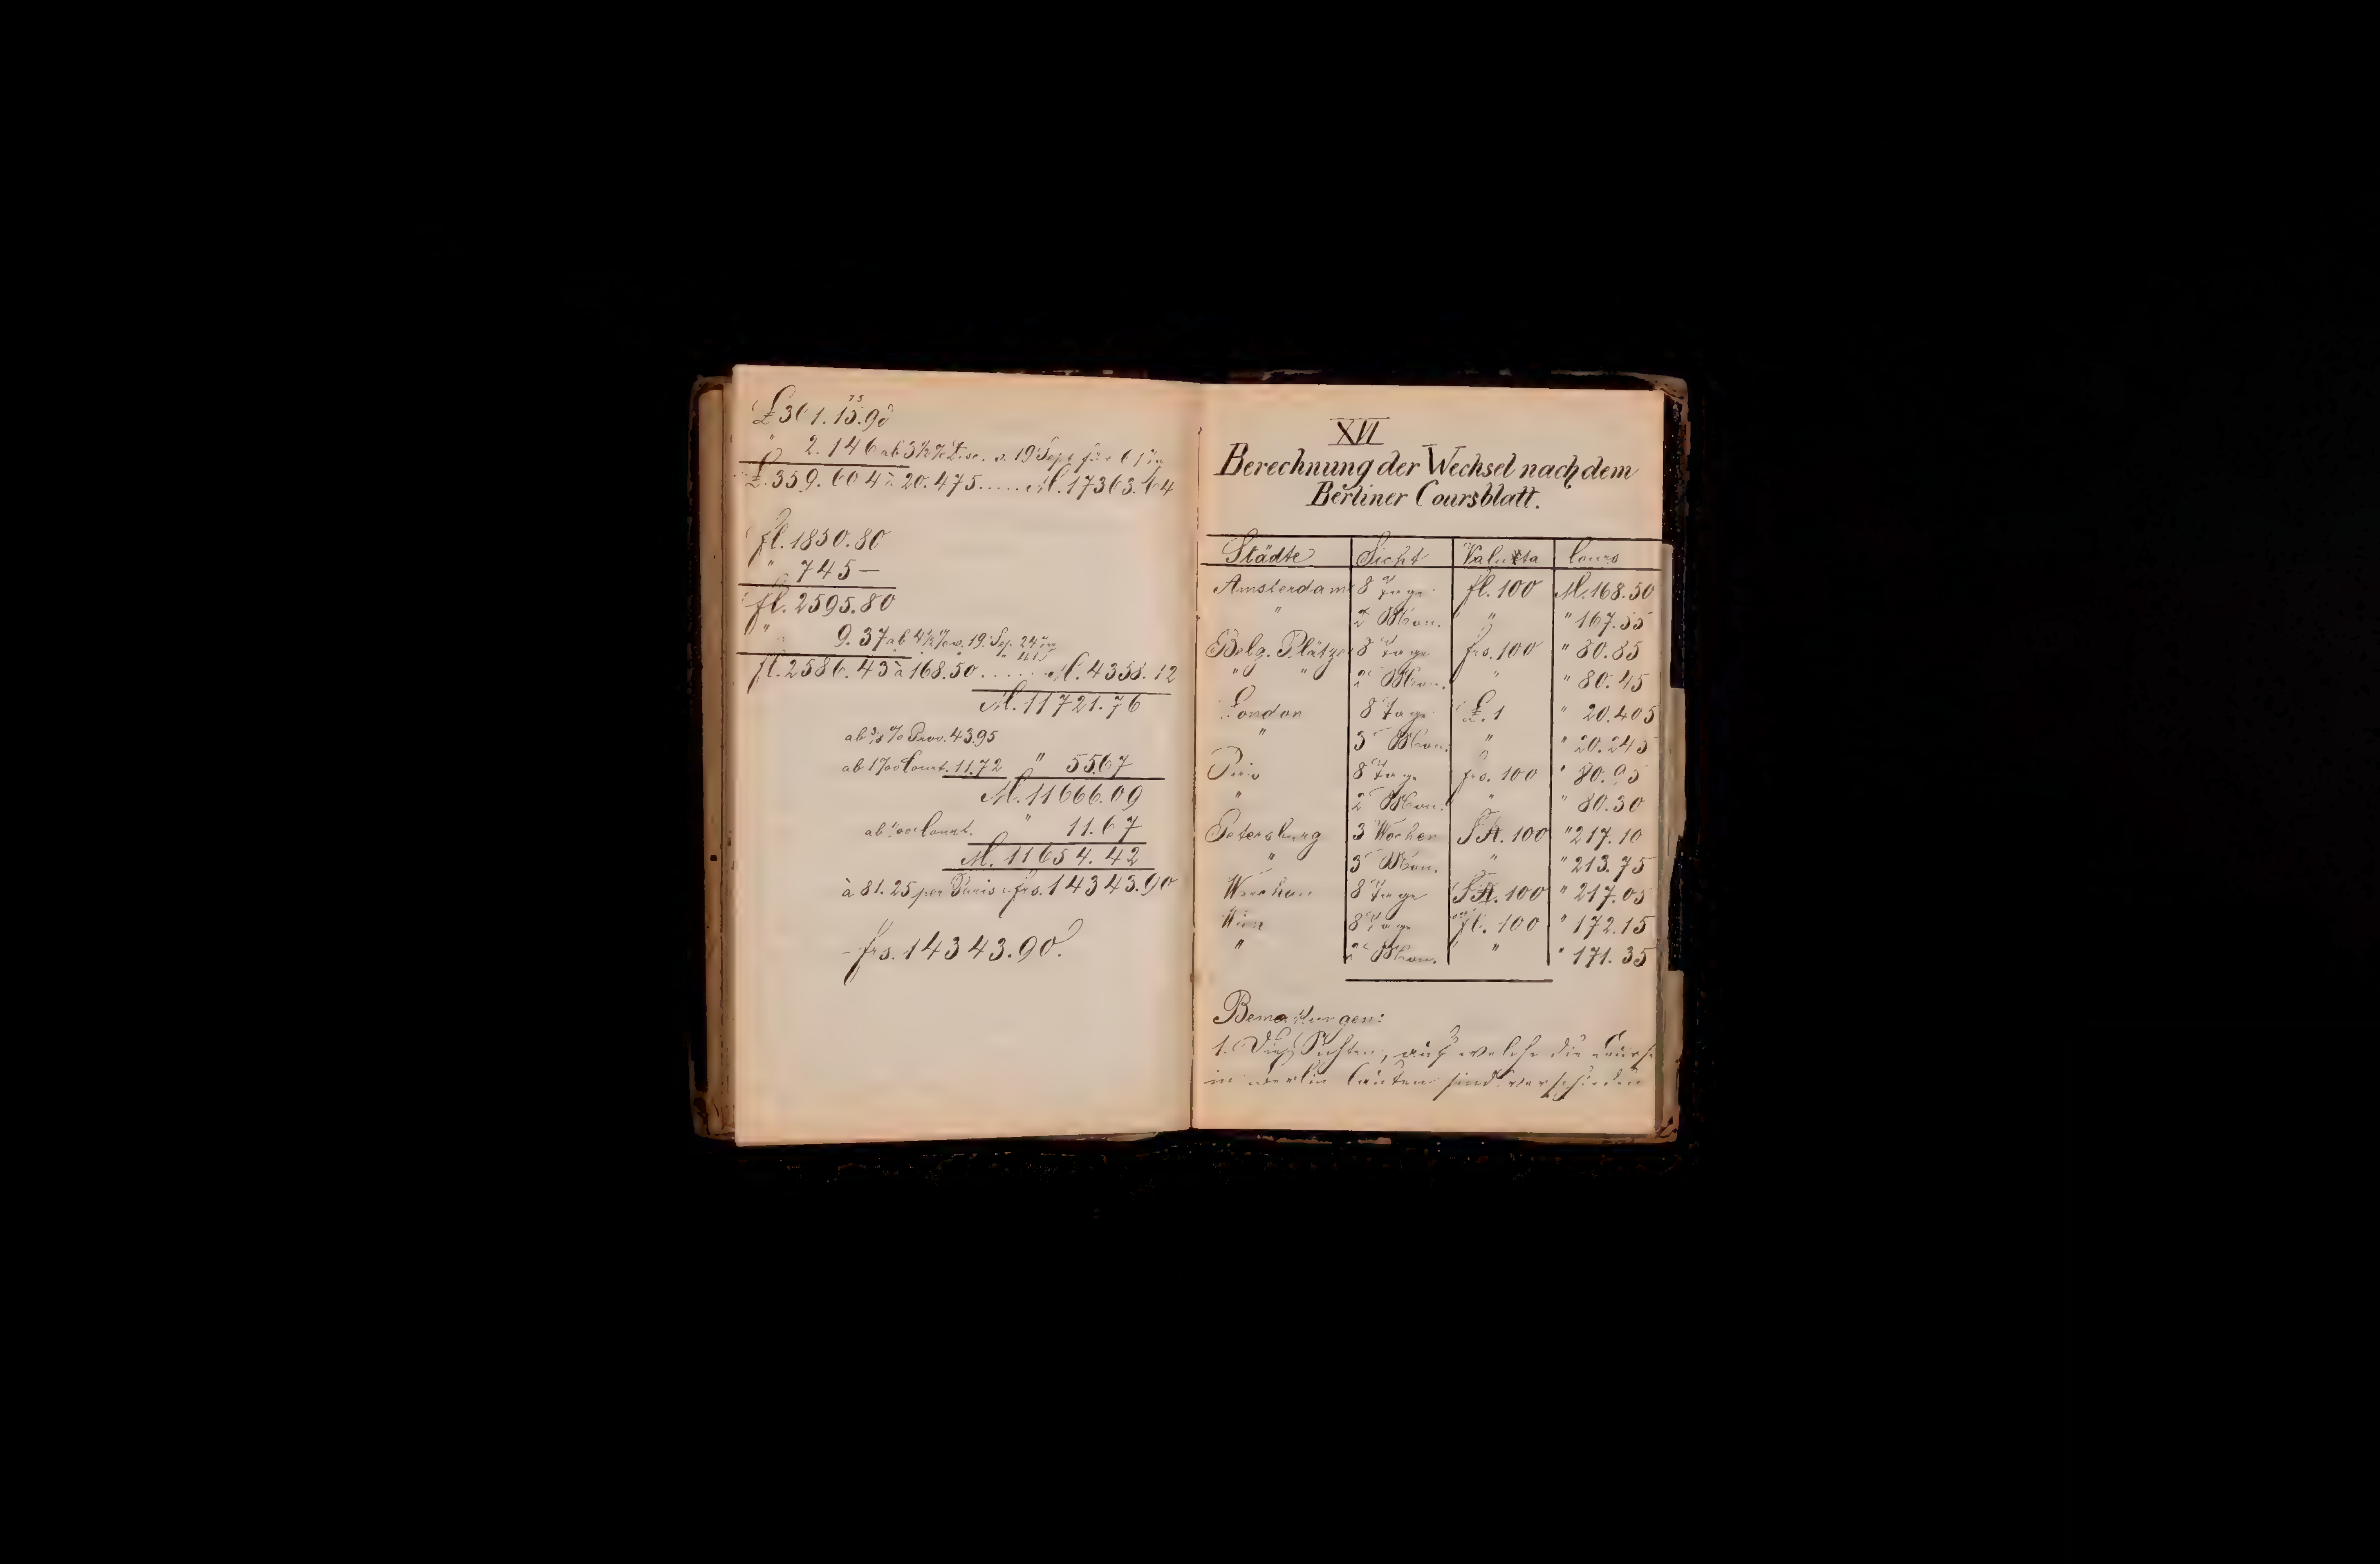 £361.15.9d
75
" 2.146 ab 3½% Disc. v. 19 Sept. für 61 Tg
£.359.604 à 20.475..... M.17363.64
fl.1850.80
" 745 —
fl.2595.80
" 9.37 ab 4½% v. 19. Sep. 24 Tg
fl.2586.43 à 168.50...... M.4358.12
M.11721.76
ab ⅜% Prov. 43.95
ab 1‰ Court. 11.72 " 55.67
M.11666.09
ab 1‰ Court. " 11.67
M.11654.42
à 81.25 per Paris frs.14343.90
frs.14343.90
XVI
Berechnung der Wechsel nach dem
Berliner Coursblatt.
Städte Sicht Valuta Cours
Amsterdam 8 Tage fl.100 M.168.50
" 2 Mon. " " 167.55
Belg. Plätze 8 Tage frs.100 " 80.85
" " 2 Mon. " " 80.45
London 8 Tage £.1 " 20.405
" 3 Mon. " " 20.245
Paris 8 Tage frs.100 " 80.95
" 2 Mon. " " 80.30
Petersburg 3 Wochen SR.100 " 217.10
" 3 Mon. " " 213.75
Warschau 8 Tage SR.100 " 217.05
Wien 8 Tage fl.100 " 172.15
" 2 Mon. " " 171.35
Bemerkungen:
1. Die Sichten, auf welche die Course
in Berlin lauten sind verschieden